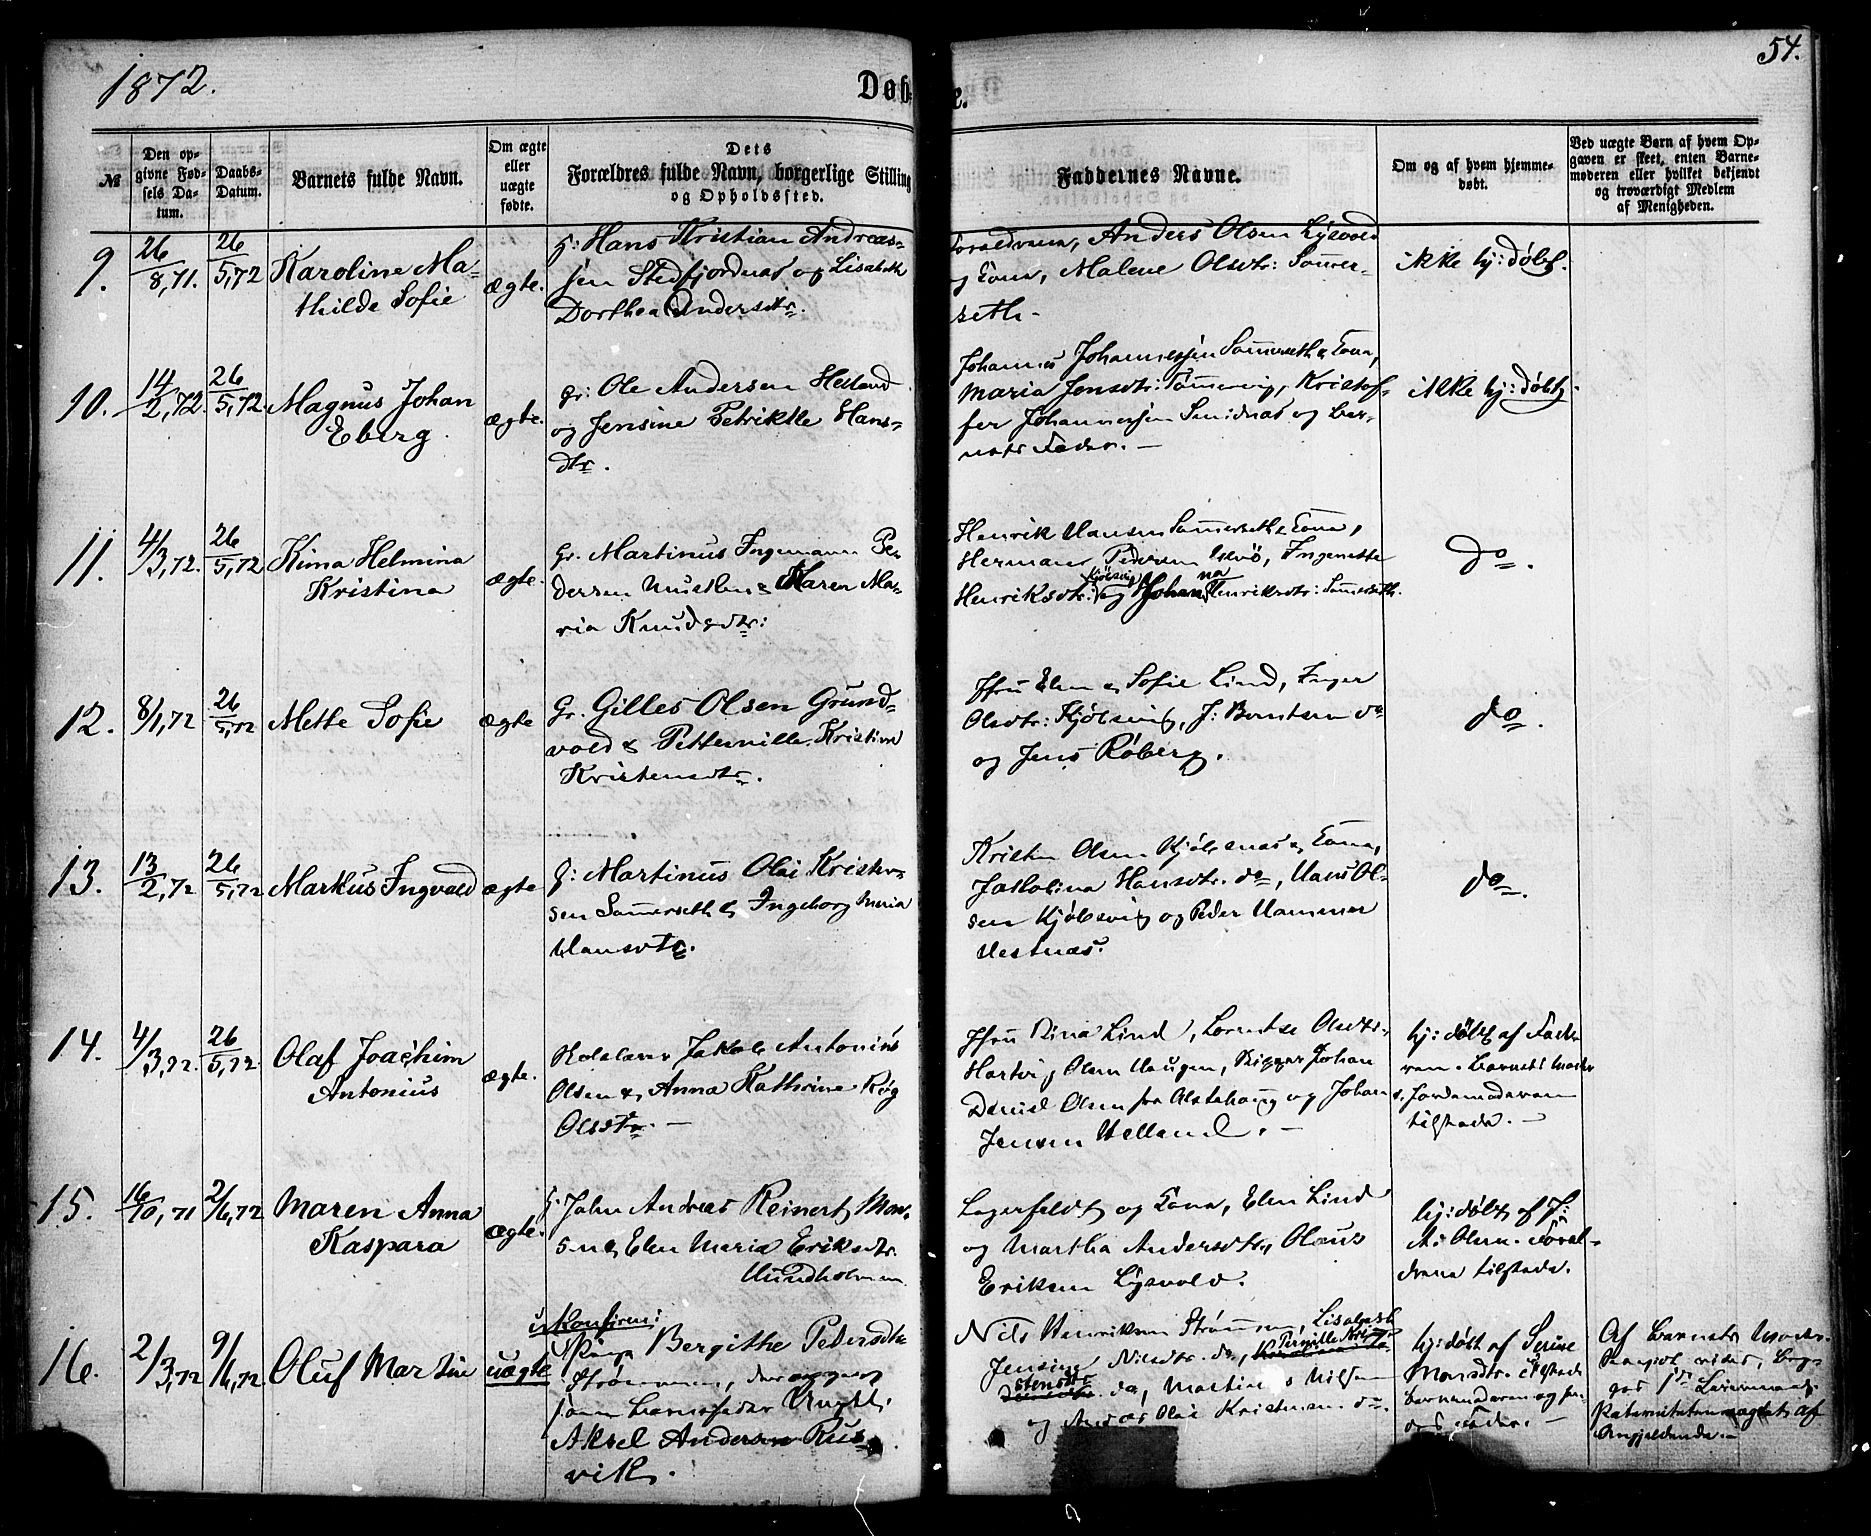 1872.
Døbte.
54.
№
Den opgivne Fødsels Datum.
Daabs-Datum.
Barnets fulde Navn.
Om ægte eller uægte fødte.
Dets Forældres fulde Navn, borgerlige Stilling og Opholdssted.
Faddernes Navne.
Om og af hvem hjemmedøbt.
Ved uægte Børn af hvem Opgaven er skeet, enten Barnemoderen eller hvilket bekjendt og troværdigt Medlem af Menigheden.
9.
26/8,71.
26/5,72
Karoline Ma=
thilde Sofie
ægte.
Hans Kristian Andreas=
sen Stedfjordnas og Lisabeth
Dorthea Andersdtr.
Forældrene, Anders Olsen Lysvold
og Kona, Malene Olsdtr: Sommer-
seth-
ikke hj: døbt.
10.
14/2,72.
26/5,72
Magnus Johan
Eberg.
ægte.
gr: Ole Andersen Helland
og Jensine Petrikke Hans=
dtr.
Johannes Johannessen Sommerseth & Kona,
Maria Jensdtr: Tømmervig, Kristof-
fer Johannessen Smidnas og Bar-
nets Fader. —
ikke hj: døbt.
11.
4/3,72.
26/5,72
Kima Helmina
Kristina
ægte.
Gr. Martinus Ingemann Pe-
dersen & Karen Ma-
ria Knudsdtr:
Henrik Hansen Sommerseth & Kona,
Herman Pedersen Ingenette
Henriksdtr: Kjølsvig og Johanna Henriksdtr: Sommerseth.
do.
12.
8/1,72
26/5,72
Mette Sofie
ægte
Gr. Gilles Olsen Grund=
vold & Petternille Kristine
Kristensdtr.
Jfru Elen & Sofie Lind, Inger
Olsdtr: Kjølsvig, J: Berntsen do
og Jens Røberg.
do.
13.
13/2,72
26/5,72
Markus Ingvald
ægte
Martinus Olai Kristen-
sen Sommerseth & Ingeborg Maria
Hansdtr.
Kristen Olsen Kjølsnas & Kona,
Jakobina Hansdtr. do, Hans Ol-
sen Kjølsvig og Peder Hammer
Vestnæs.
do.
14.
4/3,72.
26/5,72.
Olaf Joachim
Antonius
ægte.
Jakob Antonius
Olsen & Anna Kathrine Røg
Olsdtr. —
Jfru Rina Lind, Lorntse Olsdtr.
Hartvig Olsen Haugen, Johan
Daniel Olsen fra Alstahaug og Johan
Jensen Helland. —
hj: døbt af Fade-
ren. Barnets Moder
& Jordemoderen
tilstede. —
15.
16/10,71
2/6,72
Maren Anna
Kaspara
ægte.
John Andreas Reinert Mon-
sen & Elen Maria Eriksdtr.
Hundholmen
Lagerfeldt og Kona, Elen Lind
og Martha Andersdtr., Olaus
Eriksen Lysvold.
hj: døbt af J:
A: Olsen. Foræl-
drene tilstede.
16.
2/3,72
9/6,72
Oluf Martin
uægte
ukonfirm:
Pige Bergithe Pedersdtr.
Strømmen, der opgav
som Barnefader Ungkl.
Aksel Andersen Rus-
vik.
Nils Henriksen Strømmen, Lisabeth
Jensine Nilsdtr. do, Pernille
do, Martinus Nilsen
og Andreas Olai Kristensen do.
hj: døbt af Serine
Monsdtr. tilstede
barnemoderen og
Fader. —
Af Barnets Moder.